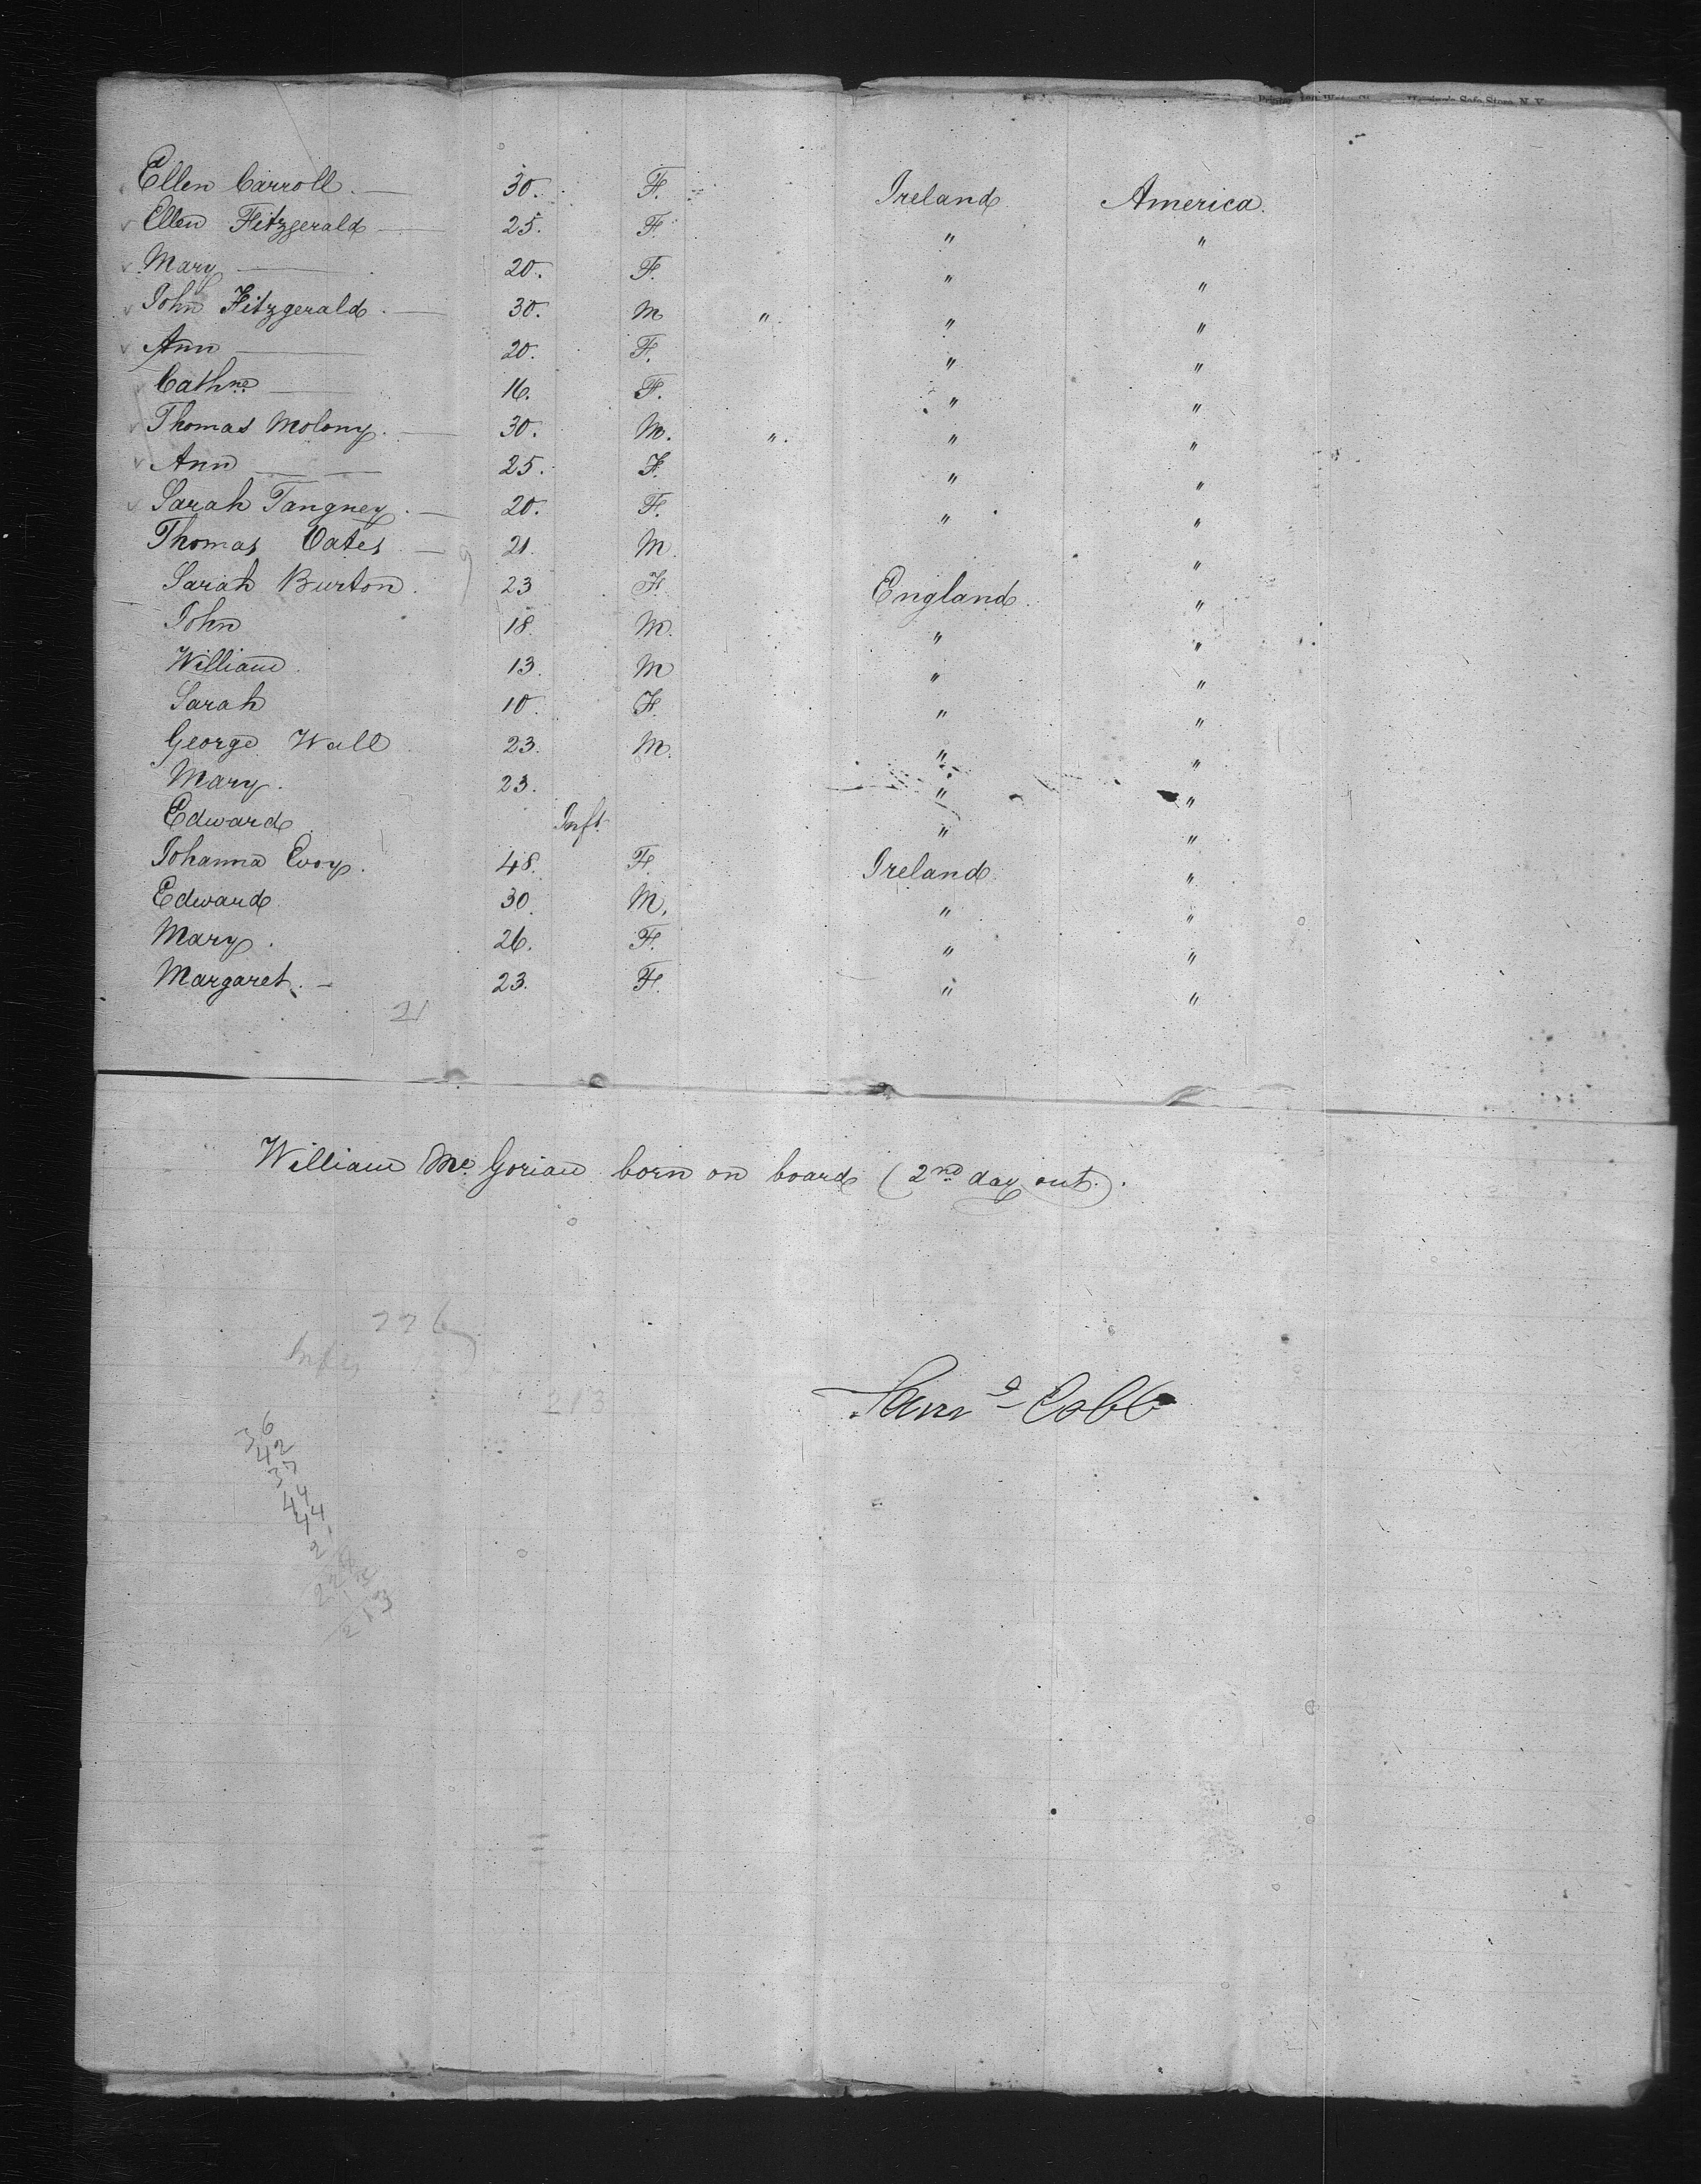 Ellen Carroll. — 30. F. Ireland America.
Ellen Fitzgerald — 25. F. " "
Mary — 20. F. " "
John Fitzgerald. — 30. M " " "
Ann — 20. F. " "
Cathne — 16. F. " "
Thomas Molony. — 30. M. " " "
Ann — 25. F. " "
Sarah Tangney. — 20. F. " "
Thomas Oates — 21. M. "
Sarah Burton. 23 F. England. "
John 18. M. " "
William. 13. M " "
Sarah 10. F. " "
George Wall 23. M. " "
Mary. 23. " "
Edward Inft. " "
Johanna Evoy. 48. F. Ireland. "
Edward 30. M. " "
Mary. 26. F. " "
Margaret. – 23. F. " "
21
William Mc. Gorian born on board (2nd day out).
226
213
Saml Cobb
36
42
37
44
44
2
213